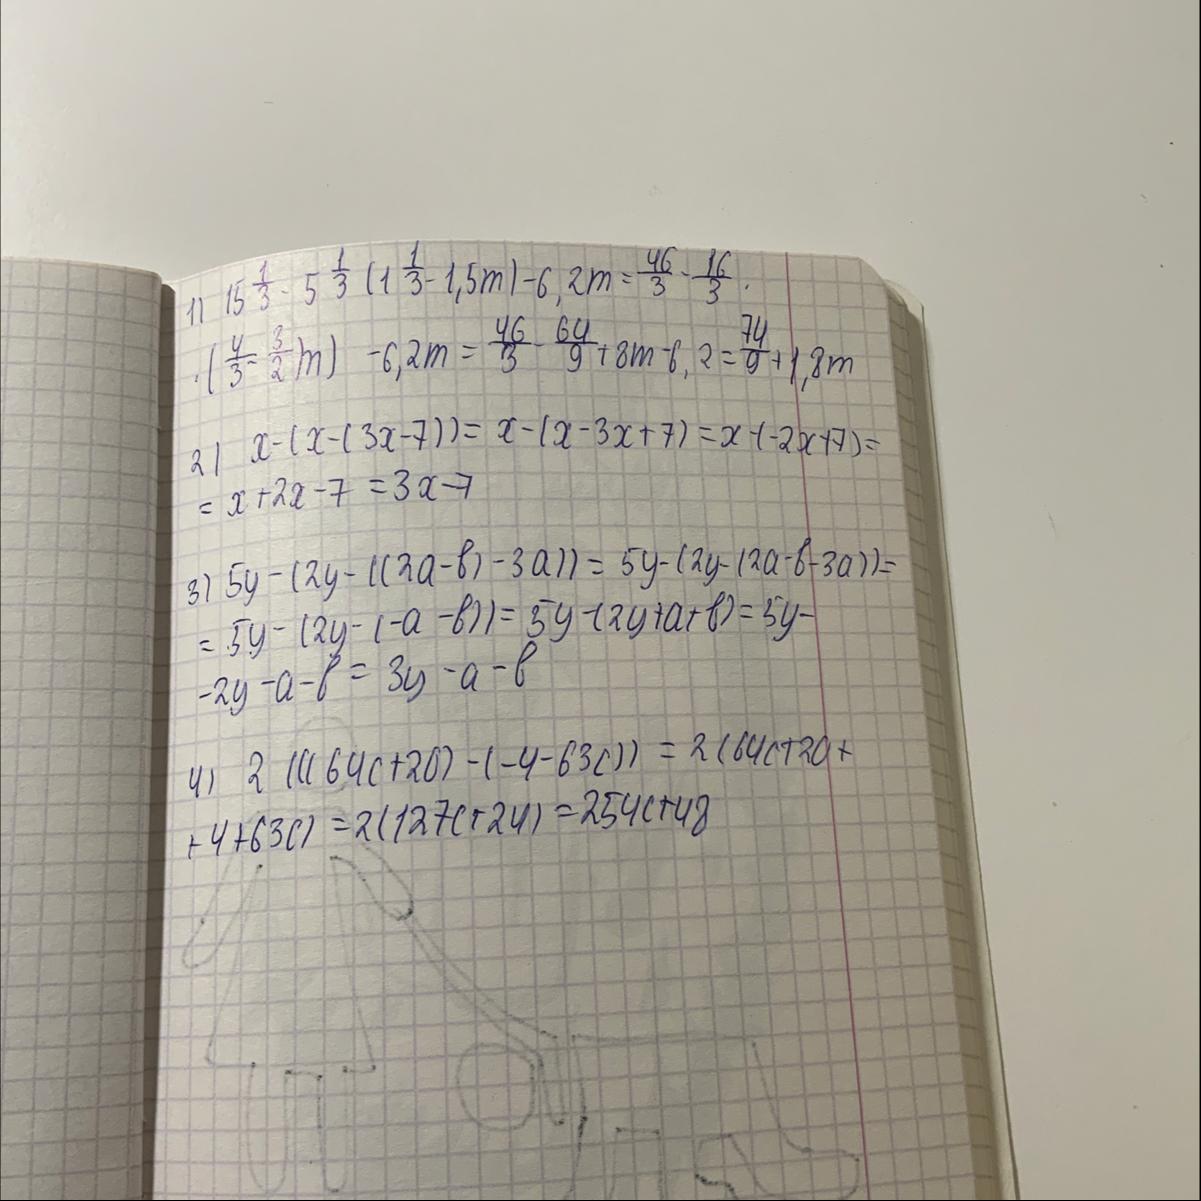 1) 15 1/3 - 5 1/3 (1 1/3 - 1,5m) - 6,2m = 46/3 - 16/3 ·
· (4/3 - 3/2 m) - 6,2m = 46/3 - 64/9 + 8m - 6,2 = 74/9 + 1,8m
2) x - (x - (3x - 7)) = x - (x - 3x + 7) = x - (-2x + 7) =
= x + 2x - 7 = 3x - 7
3) 5y - (2y - ((2a - b) - 3a)) = 5y - (2y - (2a - b - 3a)) =
= 5y - (2y - (-a - b)) = 5y - (2y + a + b) = 5y -
- 2y - a - b = 3y - a - b
4) 2 (((64c + 20) - (-4 - 63c)) = 2 (64c + 20 +
+ 4 + 63c) = 2 (127c + 24) = 254c + 48